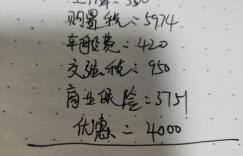 购置税：5974
车船费：420
交强税：950
商业保险：3751
优惠 = 4000